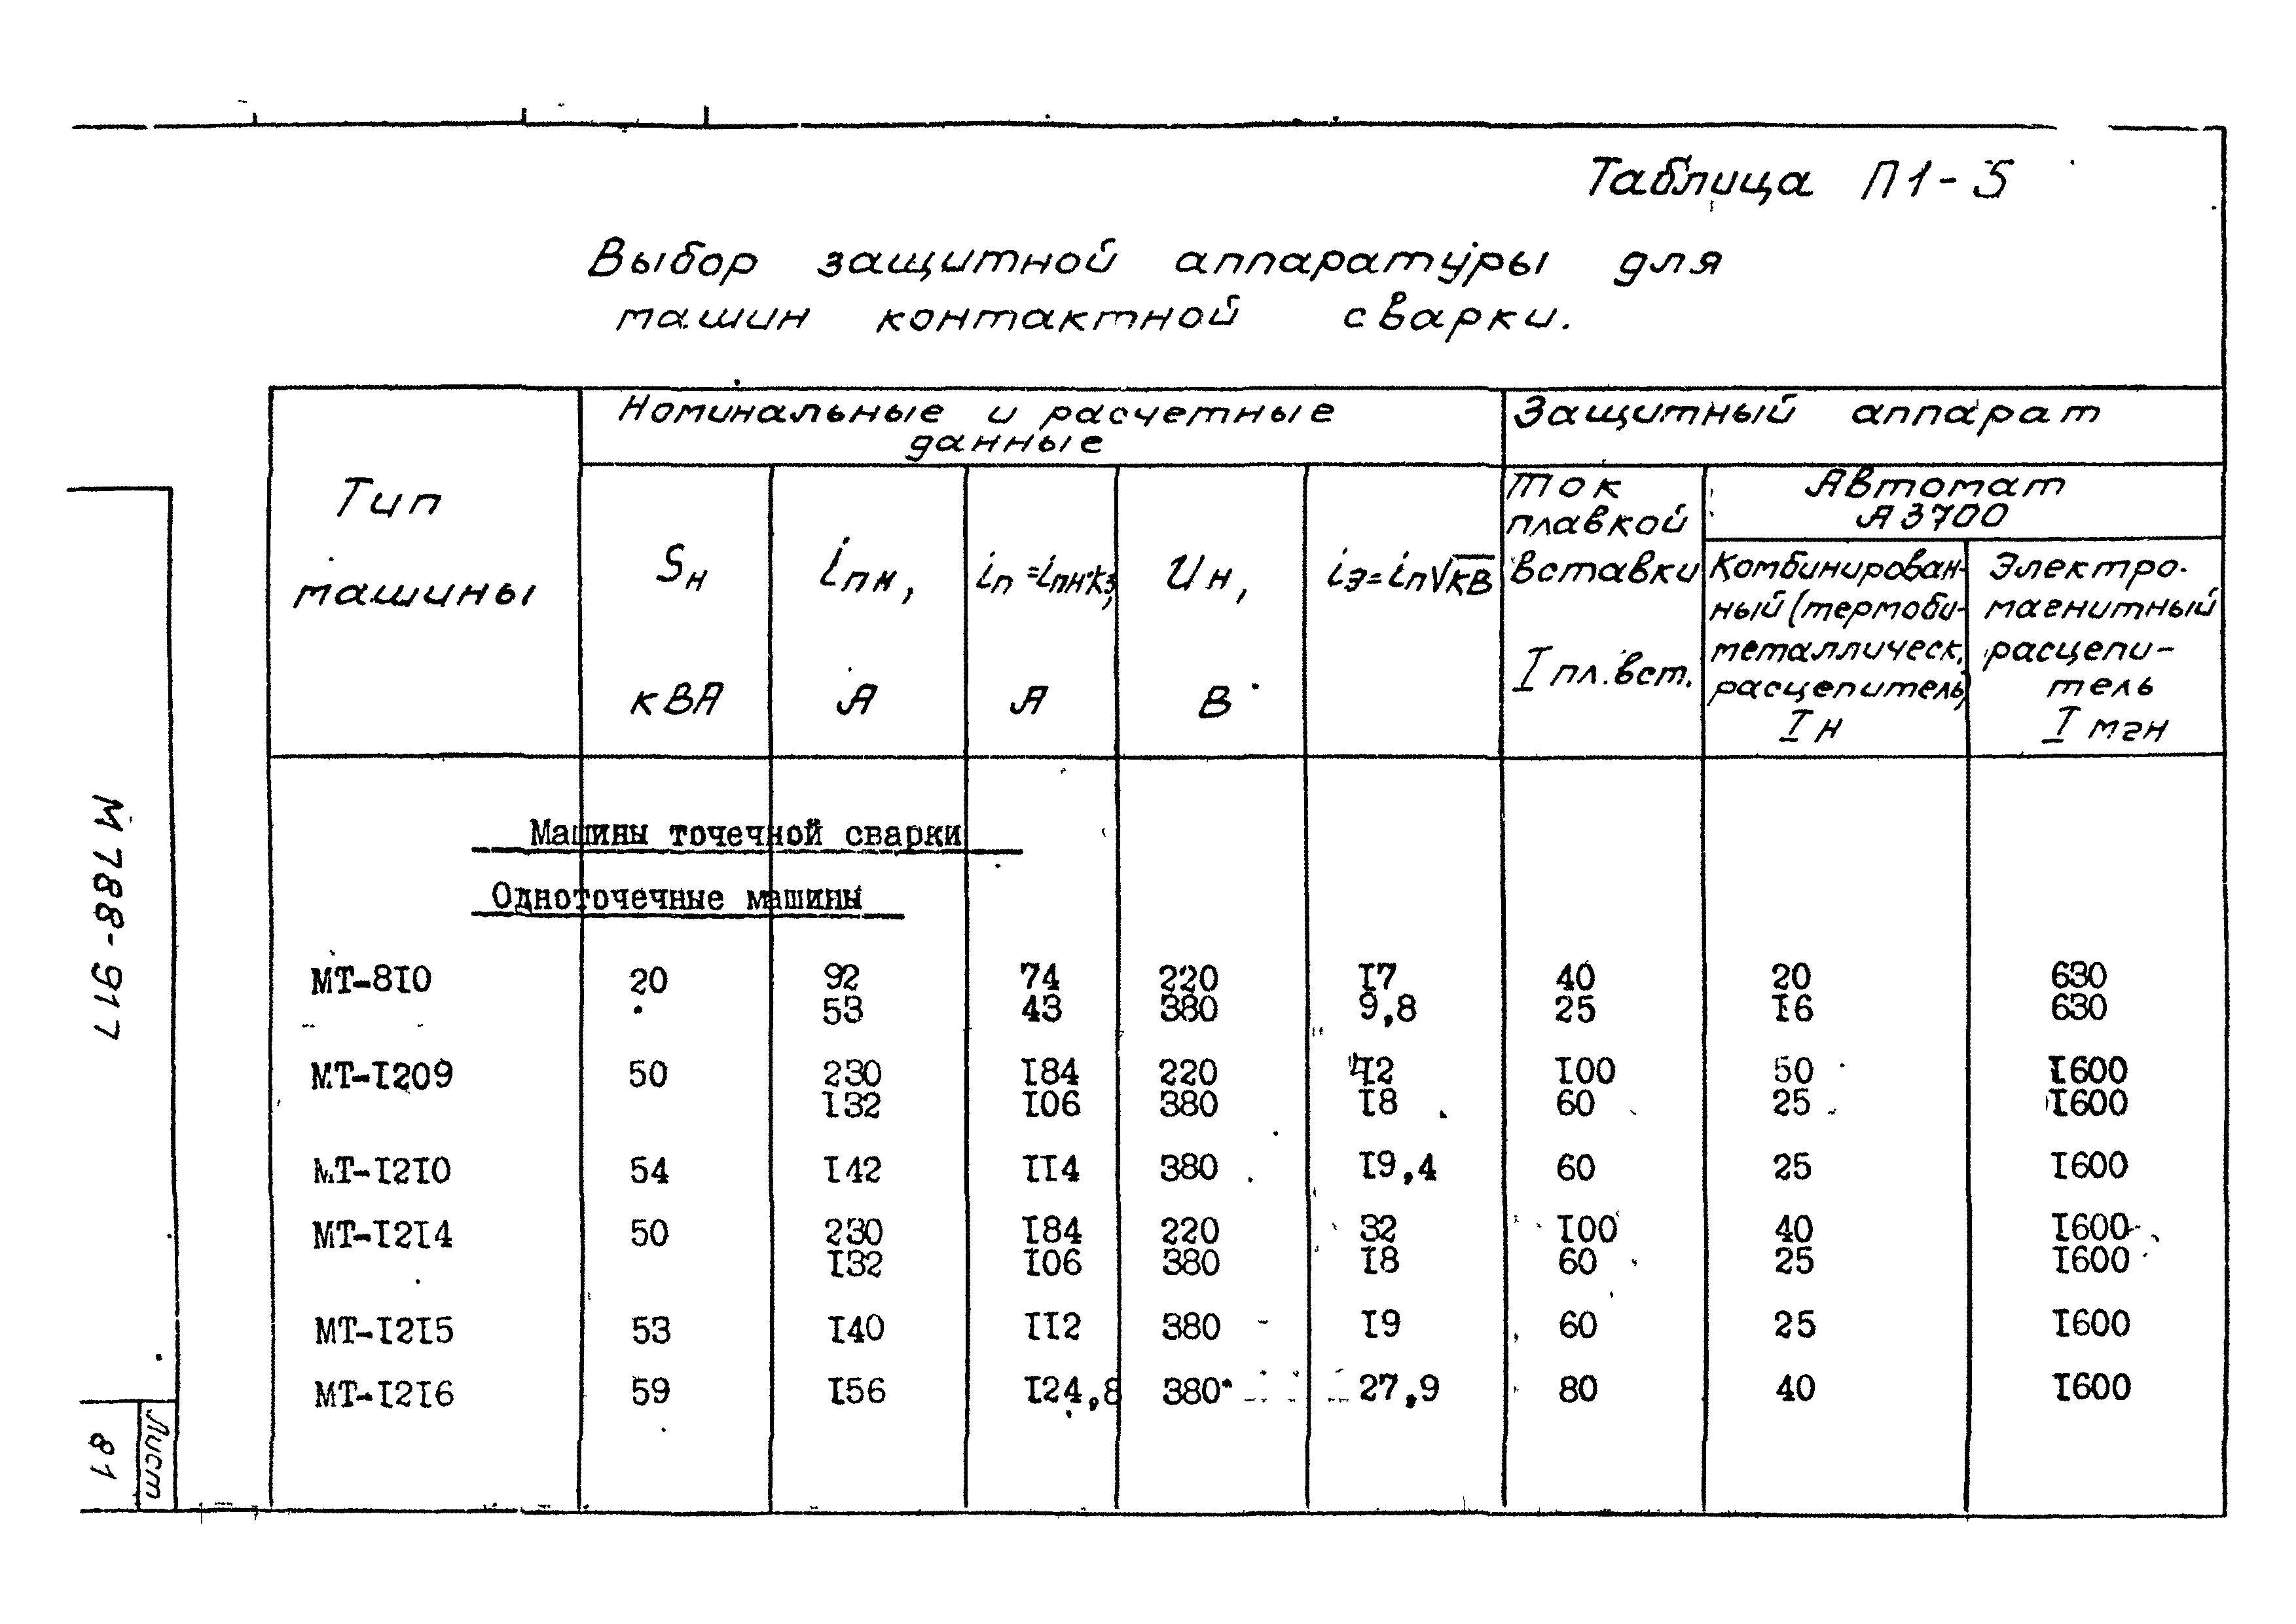 Таблица П1-5
Выбор защитной аппаратуры для
машин контактной сварки.
Тип
машины
Номинальные и расчетные
данные
Защитный аппарат
Sн
кВА
iпн,
А
iп=iпн·kз,
А
Uн,
В
iэ=iп√КВ
Ток
плавкой
вставки
I пл.вст.
Автомат
А3700
Комбинирован-
ный (термоби-
металлическ.
расцепитель)
Iн
Электро-
магнитный
расцепи-
тель
I мгн
Машины точечной сварки
Одноточечные машины
МТ-8I0 20 92 74 220 I7 40 20 630
53 43 380 9,8 25 I6 630
МТ-I209 50 230 I84 220 42 I00 50 I600
I32 I06 380 I8 60 25 I600
МТ-I2I0 54 I42 II4 380 I9,4 60 25 I600
МТ-I2I4 50 230 I84 220 32 I00 40 I600
I32 I06 380 I8 60 25 I600
МТ-I2I5 53 I40 II2 380 I9 60 25 I600
МТ-I2I6 59 I56 I24,8 380 27,9 80 40 I600
М788-917
Лист
81